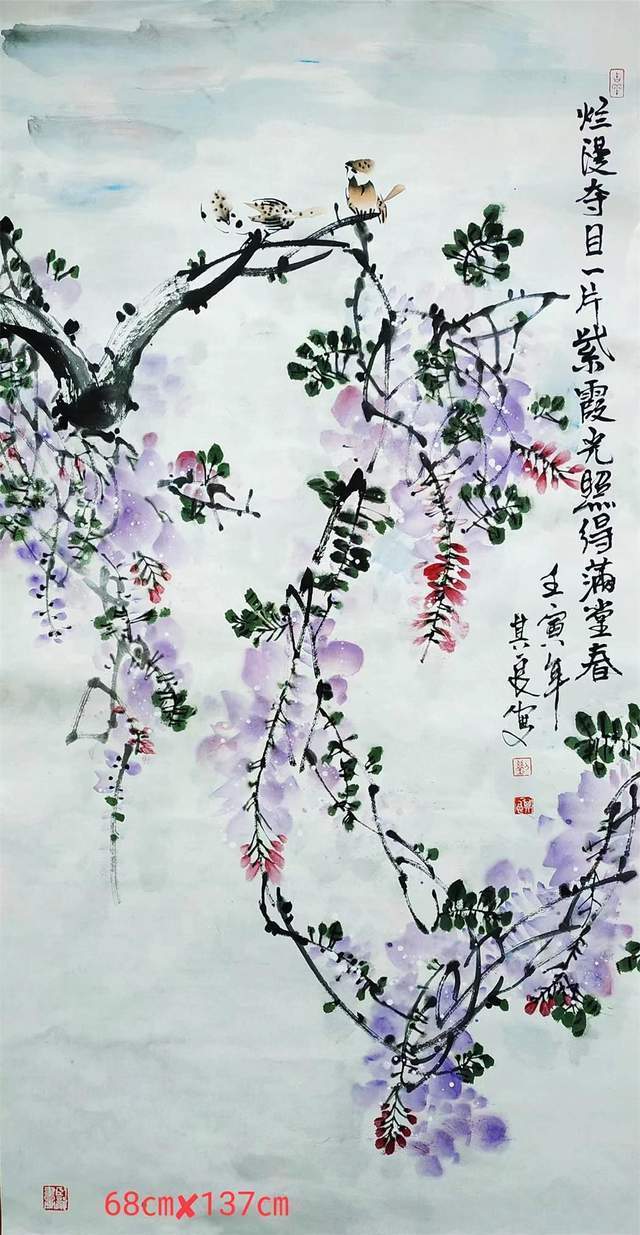 烂漫夺目一片紫霞光照得满堂春
壬寅年
其良写
68cm✘137cm